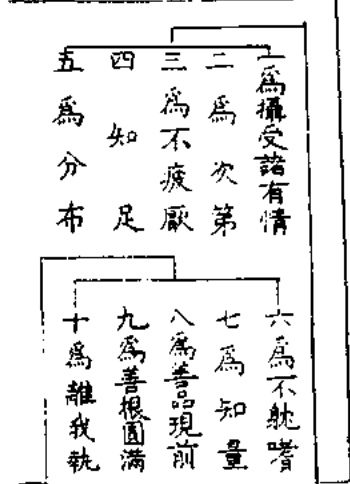 一為攝受諸有情
二為次第
三為不疲厭
四知足
五為分布
六為不耽嗜
七為知量
八為善品現前
九為善根圓滿
十為離我執